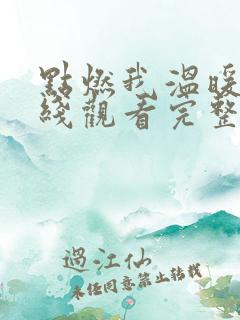 點燃我溫暖
綫觀看完整
過江仙
未經同意禁止轉載